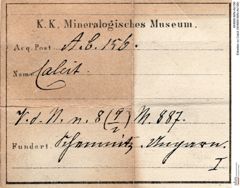 K. K. Mineralogisches Museum.
Acq. Post A. b. 156.
Name Calcit.
V. d. N. n. 8 M. 887.
Fundort Schemnitz. Ungarn.
I